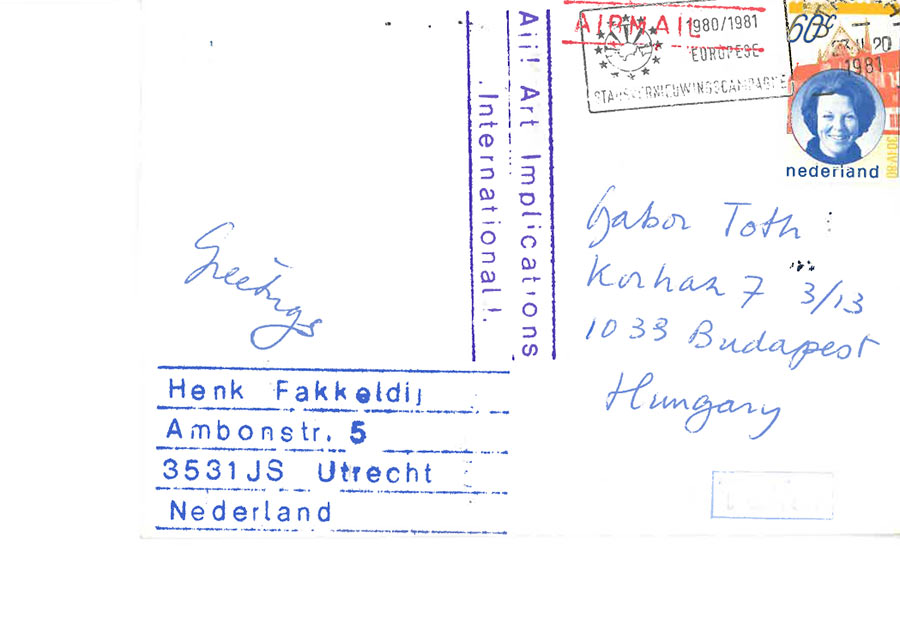 AIRMAIL
1980/1981
EUROPESE
STADSVERNIEUWINGSCAMPAGNE
60c
20
1981
30·IV·80
nederland
Aii! Art Implications
International!.
Greetings
Gabor Toth
Korhaz 7 3/13
1033 Budapest
Hungary
Henk Fakkeldij
Ambonstr. 5
3531JS Utrecht
Nederland